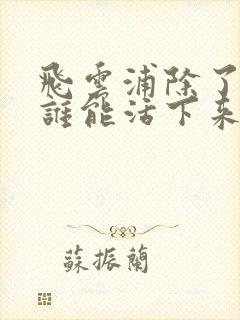 飛雲浦除了
誰能活下來
蘇振蘭